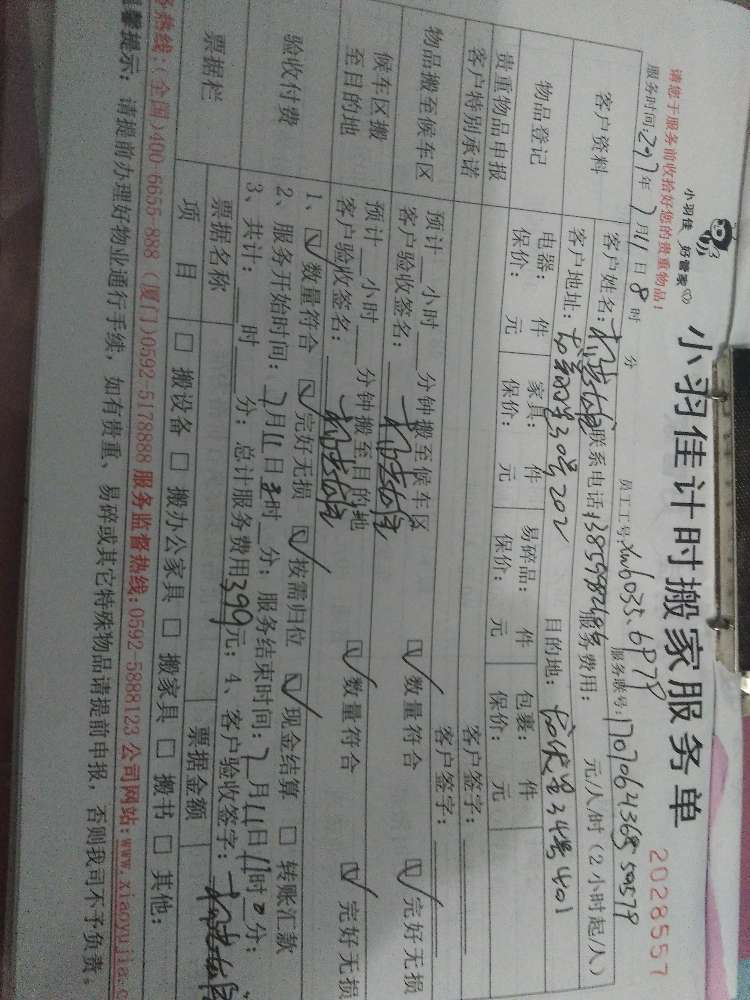 小羽佳 好管家
小羽佳计时搬家服务单
2028557
请您于服务前收拾好您的贵重物品!
员工工号: 6035.6P79
服务时间: 年7月11日8时 分
服务账号:
客户资料
客户姓名: 联系电话: 服务费用: 元/人/时(2小时起/人)
客户地址: 30号202 目的地: 34号401
物品登记
电器: 件 家具: 件 易碎品: 件 包裹: 件
保价: 元 保价: 元 保价: 元 保价: 元
贵重物品申报 客户签字:
客户特别承诺 客户签字:
物品搬至候车区
预计 小时 分钟搬至候车区
客户验收签名: 数量符合 完好无损
候车区搬至目的地
预计 小时 分钟搬至目的地
客户验收签名: 数量符合 完好无损
验收付费
1、 数量符合 完好无损 按需归位 现金结算 □ 转账汇款
2、服务开始时间: 7月11日8时 分; 服务结束时间: 7月11日11时0分;
3、共计: 时 分; 总计服务费用399元; 4、客户验收签字:
票据栏
票据名称 票据金额
项 目 □ 搬设备 □ 搬办公家具 □ 搬家具 □ 搬书 □ 其他:
务热线:(全国)400-6655-888 (厦门)0592-5178888 服务监督热线:0592-5888123 公司网站:www.xiaoyujia.c
馨提示: 请提前办理好物业通行手续, 如有贵重、易碎或其它特殊物品请提前申报, 否则我司不予负责。